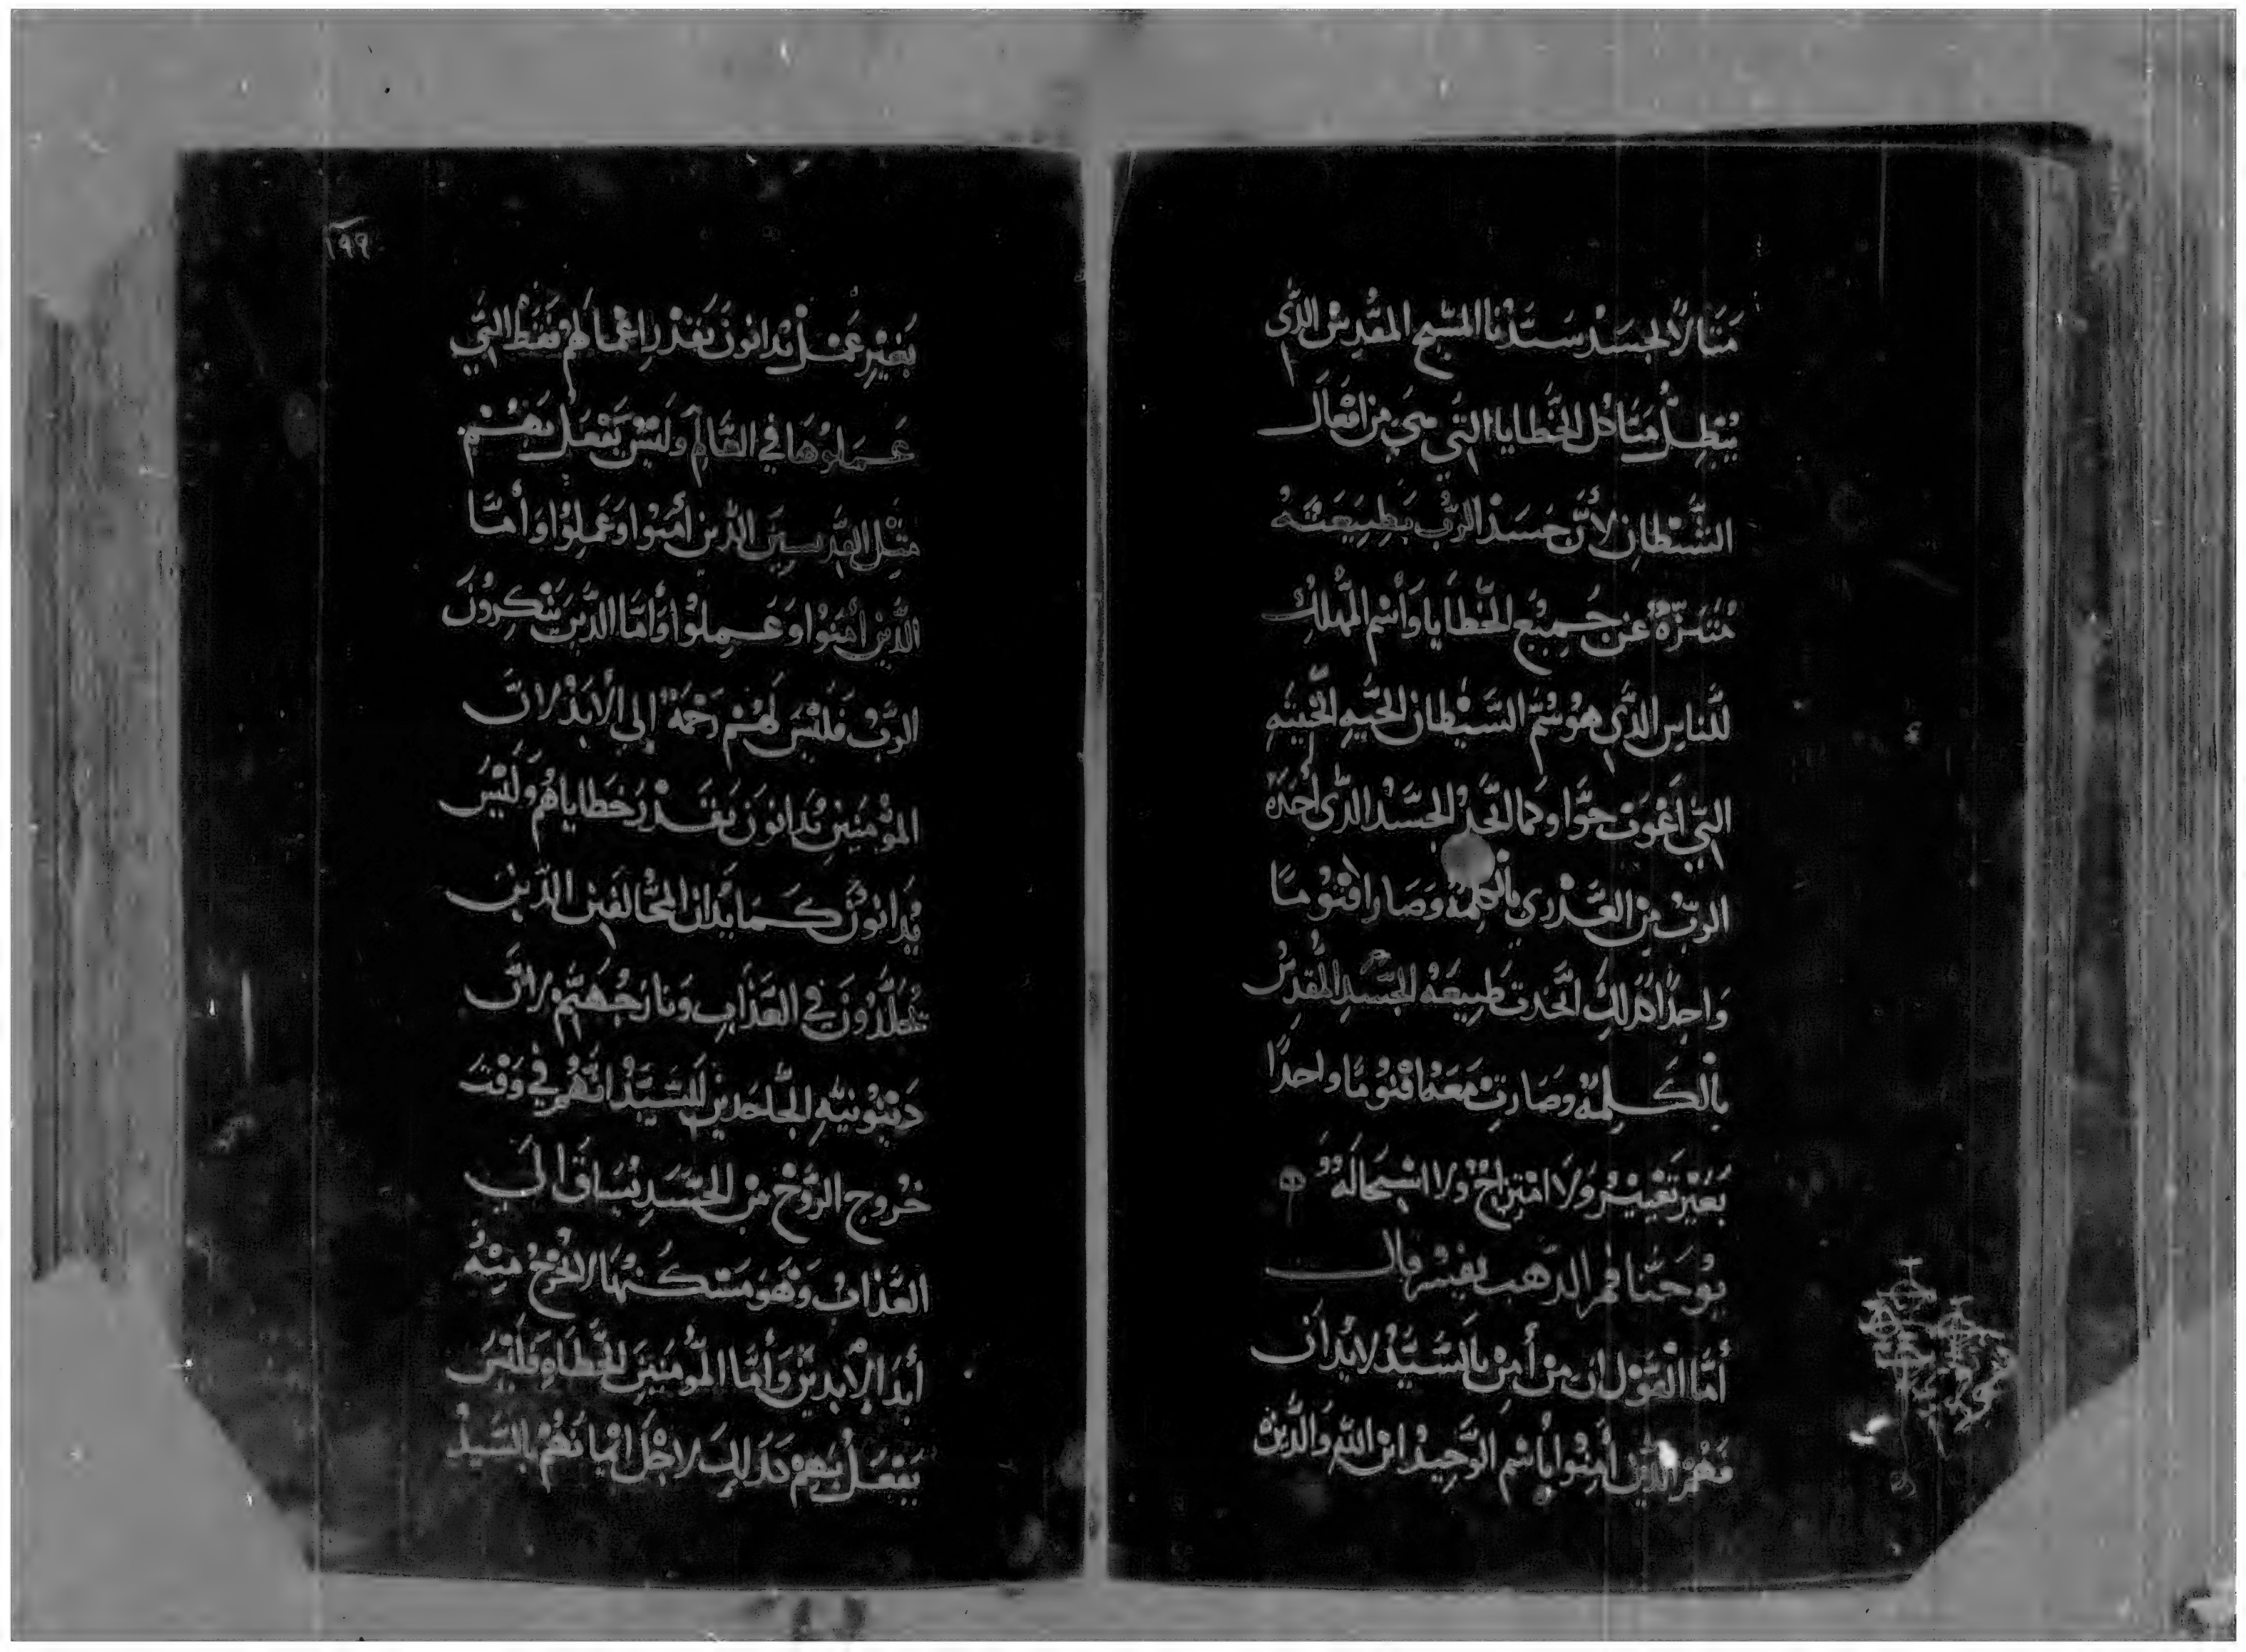 مَثالاً لجَسَدْ سَيَّدْنا المسِّيح المقُدسْ الذَّى
يُبْطِلُ مَثَال الخَّطايا التَّي هِيَ مِن افْعَال
الشَّيْطانِ لأنَّ جَسَدْ الرَّب بَطِبِيَعَتهُ
مُتنَزّهٌ عَن جَمِيْع الخَّطايا وَأسْم المُهلِك
للَّناسِ الذَّي هوُ سُمّ الشَّيْطان الحَّيهِ الخَّبيثَهِ
التَّي اغْوَتَ حَوَّا وكما اتَّحَدْ الجَسَّدْ الذَّى أخَدَهُ
الرَبُ مِن العَّدْرى بالكَلِمَهُ وَصَارا قنُومًا
وَاحِدًا كَدَلِكِ اتَّحَدتَ طَبِيعَهُ الجَسَّدِ المُقدِسُ
بالكَلِمَهُ وصَارت مَعَهُ اقنُومًا واحَدًا
بَغَيْر تَغْيِيْرُ وَلاَ امْتِزَاجْ ولا اسْتِحَالَه
يوُحَنَّا فم الدَّهب يفِسْر قال
أمَّا القَوْل ان مَنْ أَمِنْ بالسَّيَّدْ لا يُدَان
فَهُمْ الذَّيْن أَمِنُوا بأسْم الوَّحِيدْ ابن اللهِ وَالذَّيْن
١٩٩
بَغَيْرِ عَمَلْ يُدانوُنَ بَقدْر اعْمالَهُمْ فقَطْ التَّي
عَمَلوُهَا في العَّالَمْ وَلَيْسْ يَفْعَلْ بهِمْ
مثِلْ القِدّيسِيَن الذّين أمَنوُا وَعَمِلوُا وَأمَّا
الذَّيْن أمَنَوُا وَعَمِلوُا وَأمَّا الذَّيَن يَنْكِروُنَ
الرَّبُ فَلَيْسَ لَهُمْ رَحْمَةْ إلي الأبَدْ لانَّ
المؤْمَنيَنِ يُدانوُنَ بَقَدْر خَطاياهُمُ وَلَيْسَ
يُدَانوُنَ كَمَا يُدَان المخَّالفَيِن الذَّيِن
يُخلَّدُونَ في العَذَابِ وَنارَ جُهَنَّمْ لانَّ
دَيْنوُنيَّهِ الجَّاحَديْن للسَّيَّدْ انَّهُمْ في وَقْتَ
خُرُوج الرَّوُحْ مَن الجَّسَدِ تُسَاقَ الَي
العَّذابُ وَهُوَ مَسْكَنهُا لا تخُرجُ مِنْهُ
أبَدَ الأبديْنَ وَأمَّا المؤُمَنيَن الخَّطاهِ فَلَيْسَ
يَفْعَلْ بَهِمْ كَدَلِكَ لاجْل ايمانَهُمْ بالسَّيدْ